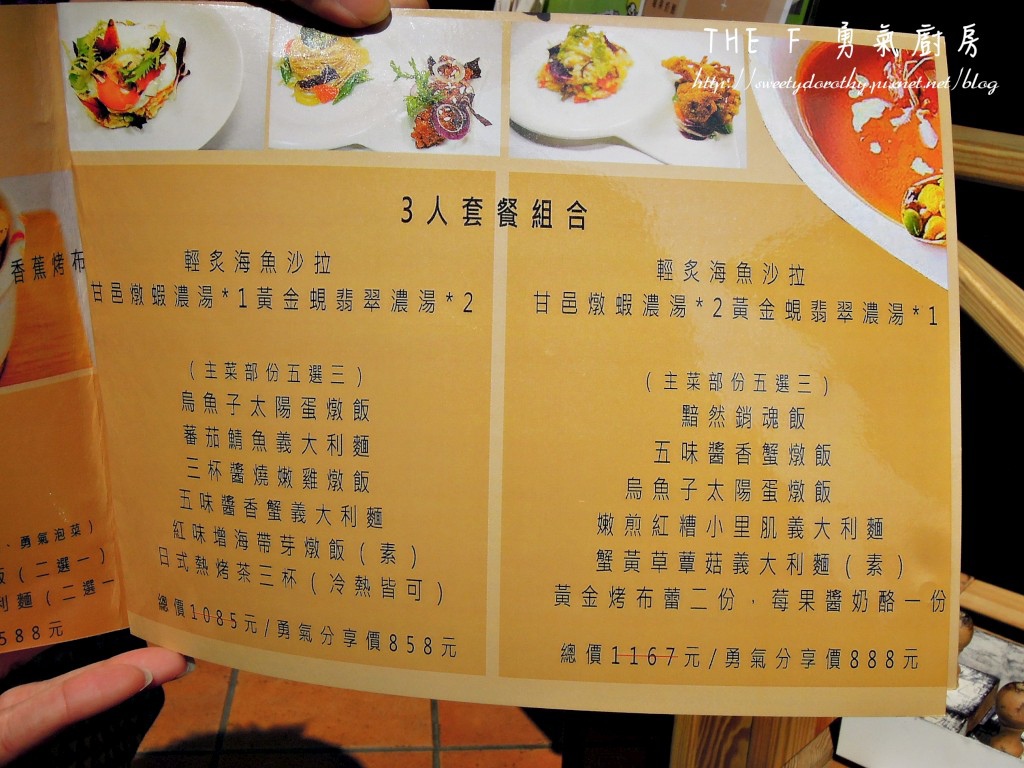 THE F 勇氣廚房
http://sweetydorothy.pixnet.net/blog
3人套餐組合
輕炙海魚沙拉
甘邑燉蝦濃湯*1黃金蜆翡翠濃湯*2
(主菜部份五選三)
烏魚子太陽蛋燉飯
蕃茄鯖魚義大利麵
三杯醬燒嫩雞燉飯
五味醬香蟹義大利麵
紅味增海帶芽燉飯(素)
日式熱烤茶三杯(冷熱皆可)
總價1085元/勇氣分享價858元
輕炙海魚沙拉
甘邑燉蝦濃湯*2黃金蜆翡翠濃湯*1
(主菜部份五選三)
黯然銷魂飯
五味醬香蟹燉飯
烏魚子太陽蛋燉飯
嫩煎紅糟小里肌義大利麵
蟹黃草蕈菇義大利麵(素)
黃金烤布蕾二份、莓果醬奶酪一份
總價1167元/勇氣分享價888元
香蕉烤布
、勇氣泡菜)
飯(二選一)
利麵(二選一
588元